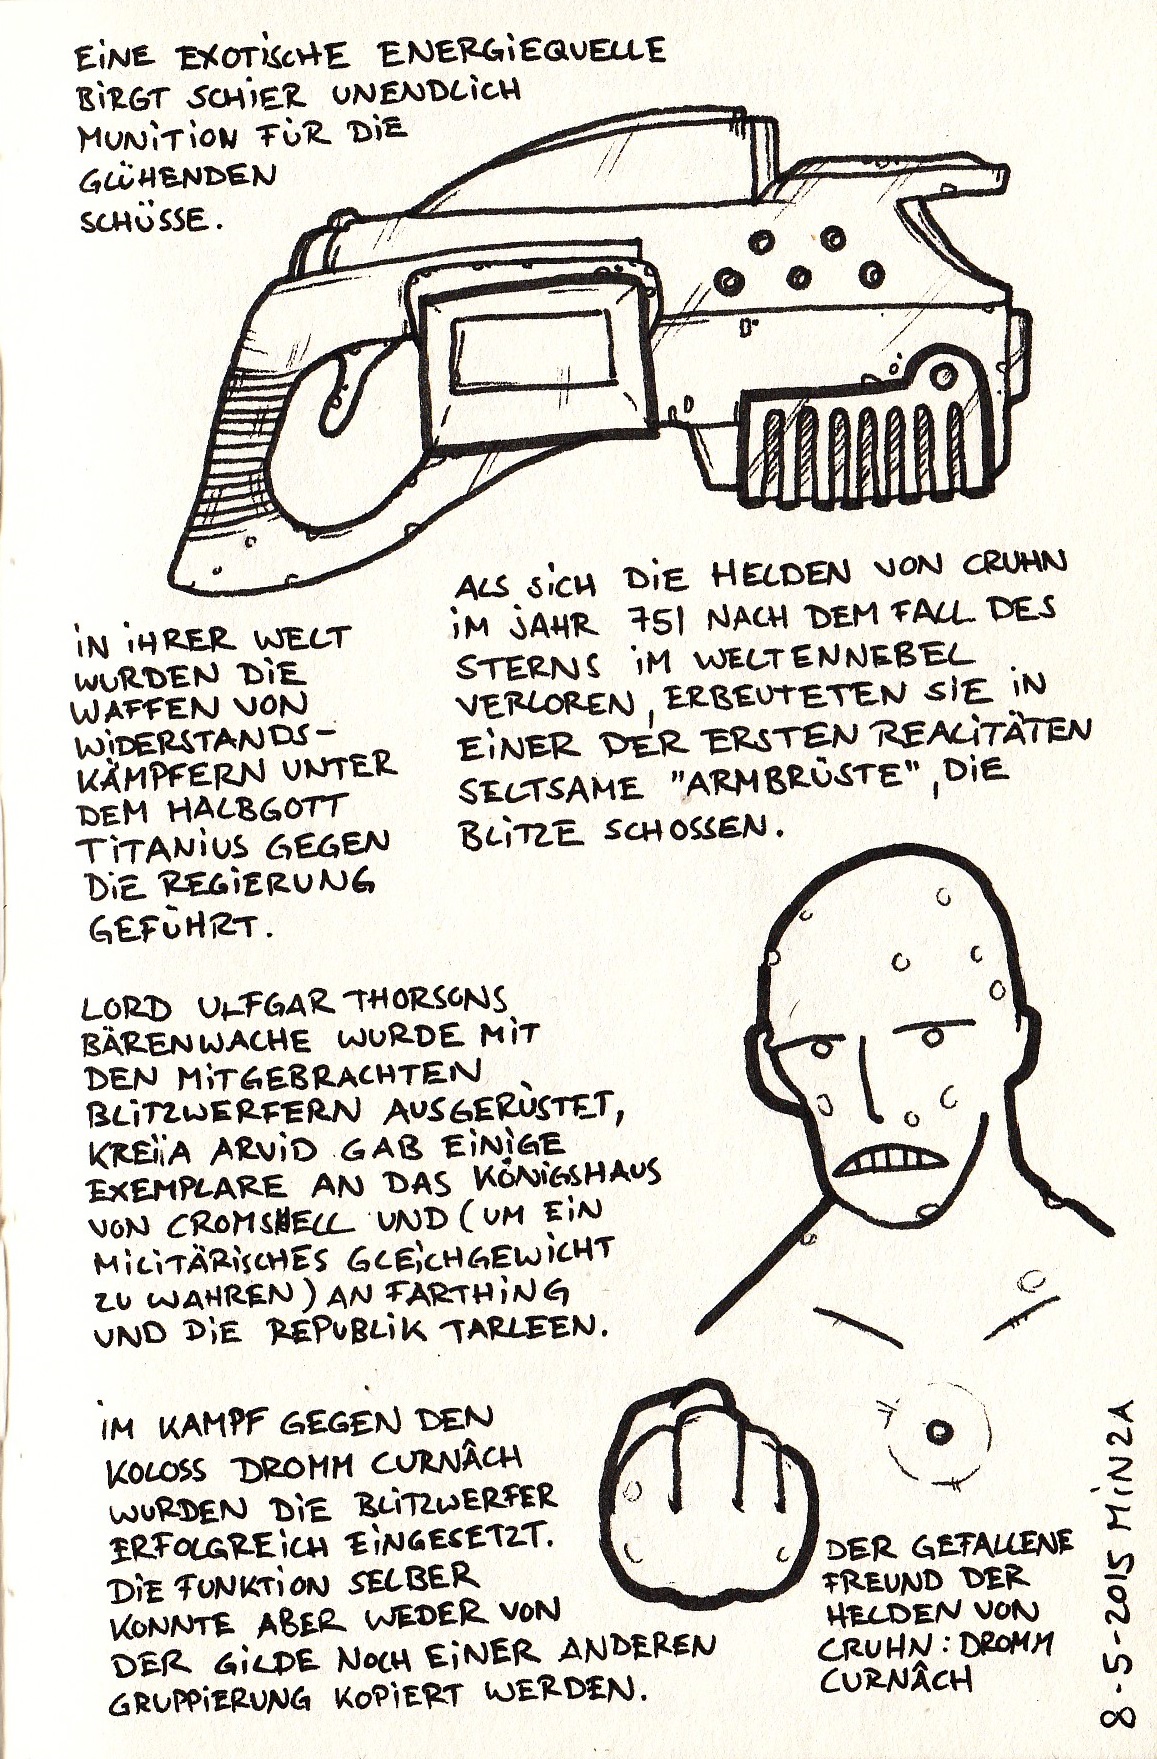 EINE EXOTISCHE ENERGIEQUELLE
BIRGT SCHIER UNENDLICH
MUNITION FÜR DIE
GLÜHENDEN
SCHÜSSE.
ALS SICH DIE HELDEN VON CRUHN
IM JAHR 751 NACH DEM FALL DES
STERNS IM WELTENNEBEL
VERLOREN, ERBEUTETEN SIE IN
EINER DER ERSTEN REALITÄTEN
SELTSAME "ARMBRÜSTE", DIE
BLITZE SCHOSSEN.
IN IHRER WELT
WURDEN DIE
WAFFEN VON
WIDERSTANDS-
KÄMPFERN UNTER
DEM HALBGOTT
TITANIUS GEGEN
DIE REGIERUNG
GEFÜHRT.
LORD ULFGAR THORSONS
BÄRENWACHE WURDE MIT
DEN MITGEBRACHTEN
BLITZWERFERN AUSGERÜSTET,
KREIIA ARVID GAB EINIGE
EXEMPLARE AN DAS KÖNIGSHAUS
VON CROMSHELL UND (UM EIN
MILITÄRISCHES GLEICHGEWICHT
ZU WAHREN) AN FARTHING
UND DIE REPUBLIK TARLEEN.
IM KAMPF GEGEN DEN
KOLOSS DROMM CURNÂCH
WURDEN DIE BLITZWERFER
ERFOLGREICH EINGESETZT.
DIE FUNKTION SELBER
KONNTE ABER WEDER VON
DER GILDE NOCH EINER ANDEREN
GRUPPIERUNG KOPIERT WERDEN.
DER GEFALLENE
FREUND DER
HELDEN VON
CRUHN: DROMM
CURNÂCH
8-5-2015 MINZA